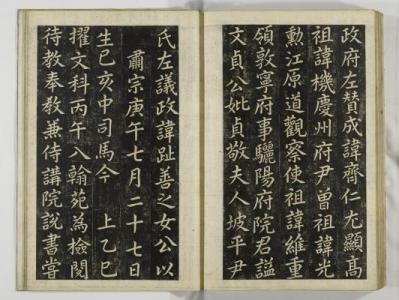 政府左贊成諱齊仁尤顯高
祖諱機慶州府尹曾祖諱光
勳江原道觀察使祖諱維重
領敦寧府事驪陽府院君諡
文貞公妣貞敬夫人坡平尹
氏左議政諱趾善之女公以
肅宗庚午七月二十七日
生己亥中司馬今 上乙巳
擢文科丙午入翰苑為檢閱
待教奉教兼侍講院說書嘗